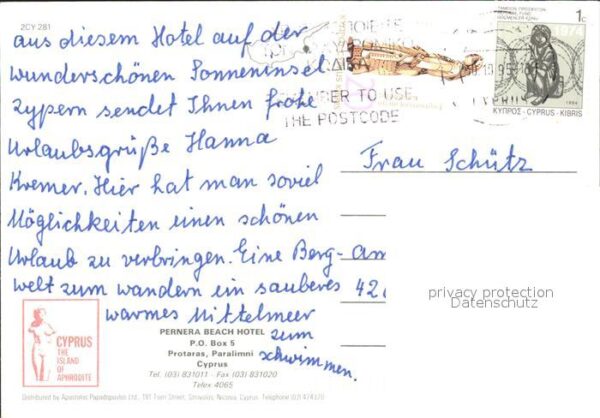 2CY 281
aus diesem Hotel auf der
wunderschönen Sonneninsel
zypern sendet Ihnen frohe
Urlaubsgrüße Hanna
Kremer. Hier hat man soviel
Möglichkeiten einen schönen
Urlaub zu verbringen. Eine Berg-
welt zum wandern ein sauberes
warmes Mittelmeer
zum
schwimmen.
TO USE
THE POSTCODE
1c
1994
ΚΥΠΡΟΣ - CYPRUS - KIBRIS
Frau Schütz
Am
42
privacy protection
Datenschutz
CYPRUS
THE
ISLAND
OF
APHRODITE
PERNERA BEACH HOTEL
P.O. Box 5
Protaras, Paralimni
Cyprus
Tel. (03) 831011 - Fax (03) 831020
Telex 4065
Distributed by Apostolos Papadopoulos Ltd., Street, Strovolos, Nicosia, Cyprus. Telephone (02)